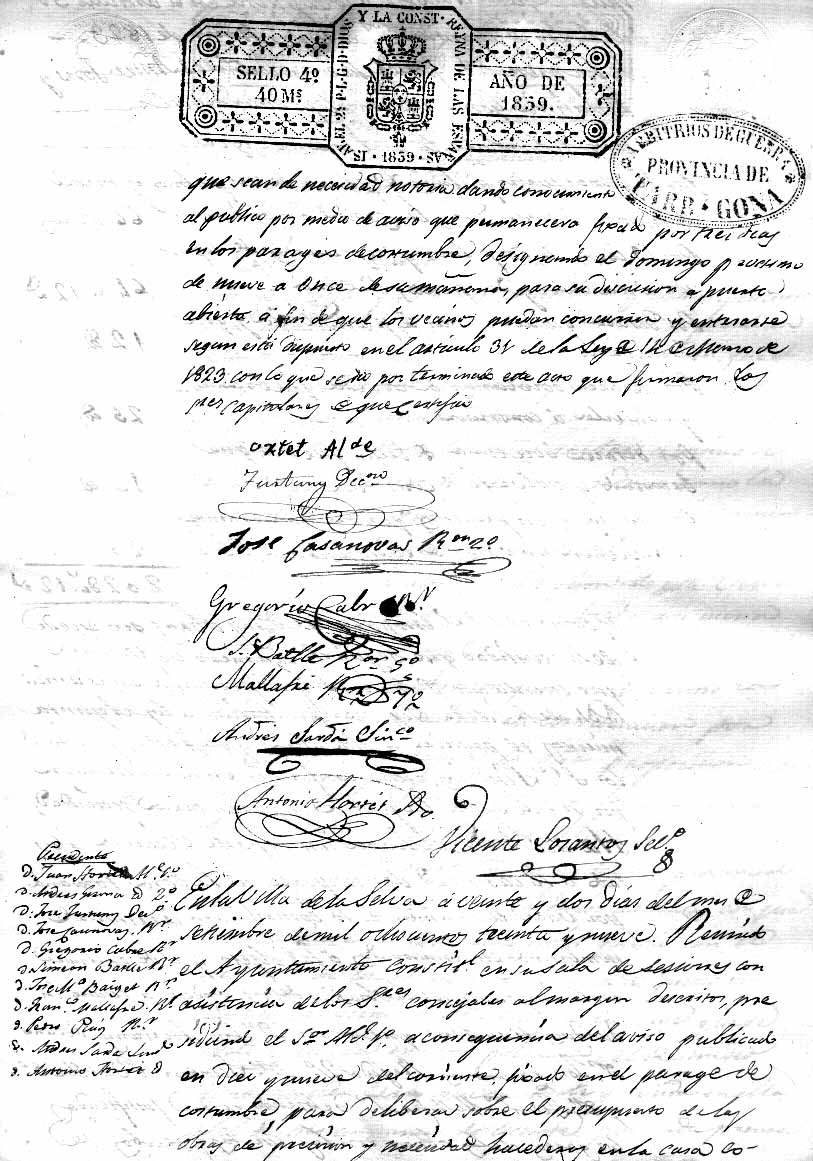 ISABEL 2ª P.L.G.D.DIOS Y LA CONST. REYNA DE LAS ESPAÑAS
SELLO 4º
40 Ms
AÑO DE
1839.
1839
ARBITRIOS DE GUERRA
PROVINCIA DE
TARR·GONA
que sean de necesidad notoria dando conocimiento
al publico por medio de aviso que permanecera fixado por tres dias
en los parages de costumbre, designando el domingo proximo
de nueve a Once de su mañana, para su discusion a puerta
abierta á fin de que los vecinos puedan concurrir y enterarse
segun está dispuesto en el articulo 31 de la Ley de 14 de Marzo de
1823 con lo que se dio por terminado este acto que firmaron los
Sres Capitulares de que Certifico
oxtet Alde
Fustuny Decno
Jose Casanovas Ror 2º
Gregorio Cabr
S. Batlle Ror 5º
Mallafré 7º
Andrés Sardá Sinco
Antonio Hortét
Vicente Lorantos Seco
Presidente
D. Juan 1º
D. Andres 2º
D. Jose Fustuny Dec.
D. Jose Casanovas Rr.
D. Gregorio Cabre Rr
D. Simeon Batlle Rr
D. Jose Mª Baiget Rr
D. Franco Mallafré Rr
D. Pedro Puig Rr
D. Andres Sarda Sind
D. Antonio Hortet
En la Villa de la Selva á veinte y dos dias del mes de
setiembre de mil ochocientos treinta y nueve. Reunido
el Ayuntamiento Constitl. en su sala de sesiones con
asistencia de los Sres concejales al margen descritos, pre
sidiend el Sor Alde 1º a consequencia del aviso publicado
en diez y nueve del corriente, fixado en el parage de
costumbre para deliberar sobre el presupuesto de las
obras de precision y necesidad hacederas en la casa Co-